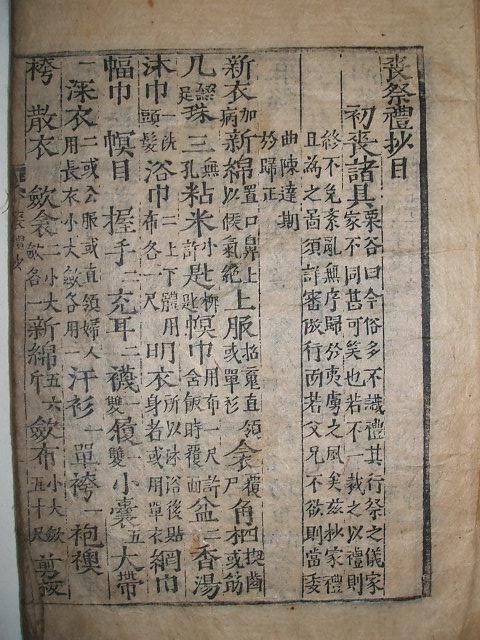 喪祭禮抄目
初喪諸具
栗谷曰今俗多不識禮其行祭之儀家
家不同甚可笑也若不一裁之以禮則
終不免紊亂無序歸於夷虜之風矣玆抄家禮
且爲之圖須詳審依行而若父兄不欲則當委
曲陳達期
於歸正
新衣加病新綿置口鼻上以候氣絶上服招魂直領或單衫衾覆尸角柶四楔齒或筯
几綴足珠三無孔粘米小許匙柳匙幎巾用布一尺許舍飯時覆面盆二香湯
沐巾一洗頭髮浴巾二上下體用布各一尺明衣所以沐浴後貼身者或用單衣網巾
幅巾幎目握手二充耳二襪一雙履一雙小囊五大帶
一深衣二或公服或直領婦人用長衣小大斂各用一汗衫一單袴一袍襖
袴散衣斂衾二小大斂各一新綿五六斤斂布小大斂五十尺剪板